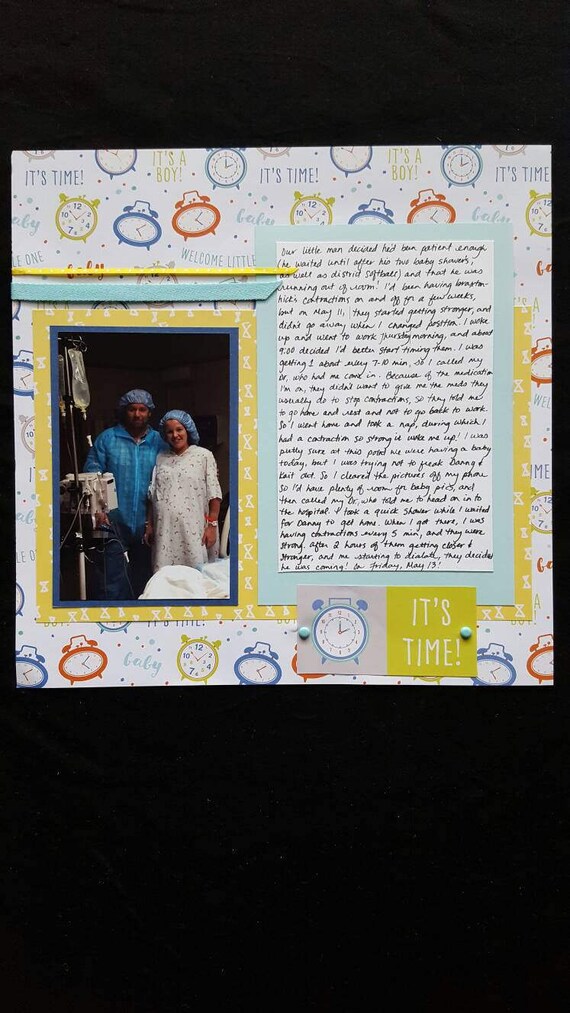 IT'S TIME!
IT'S A
BOY!
IT'S TIME!
IT'S A
BOY!
IT'S TIME!
baby
baby
baby
LE ONE
WELCOME LITTLE
Our little man decided he'd been patient enough
(he waited until after his two baby showers,
as well as district softball) and that he was
running out of room! I'd been having braxton-
hick's contractions on and off for a few weeks,
but on May 11, they started getting stronger, and
didn't go away when I changed position. I woke
up and went to work Thursday morning, and about
9:00 decided I'd better start timing them. I was
getting 1 about every 7-10 min, so I called my
Dr, who had me come in. Because of the medication
I'm on, they didn't want to give me the meds they
usually do to stop contractions, so they told me
to go home and rest and not to go back to work.
So I went home and took a nap, during which I
had a contraction so strong it woke me up! I was
pretty sure at this point we were having a baby
today, but I was trying not to freak Danny &
Kait out. So I cleared the pictures off my phone
so I'd have plenty of room for baby pics, and
then called my Dr, who told me to head on in to
the hospital. I took a quick shower while I waited
for Danny to get home. When I got there, I was
having contractions every 5 min, and they were
strong. After 2 hours of them getting closer &
stronger, and me starting to dialate, they decided
he was coming! On Friday, May 13!
IT'S
TIME!
IT'S TIME!
baby
baby